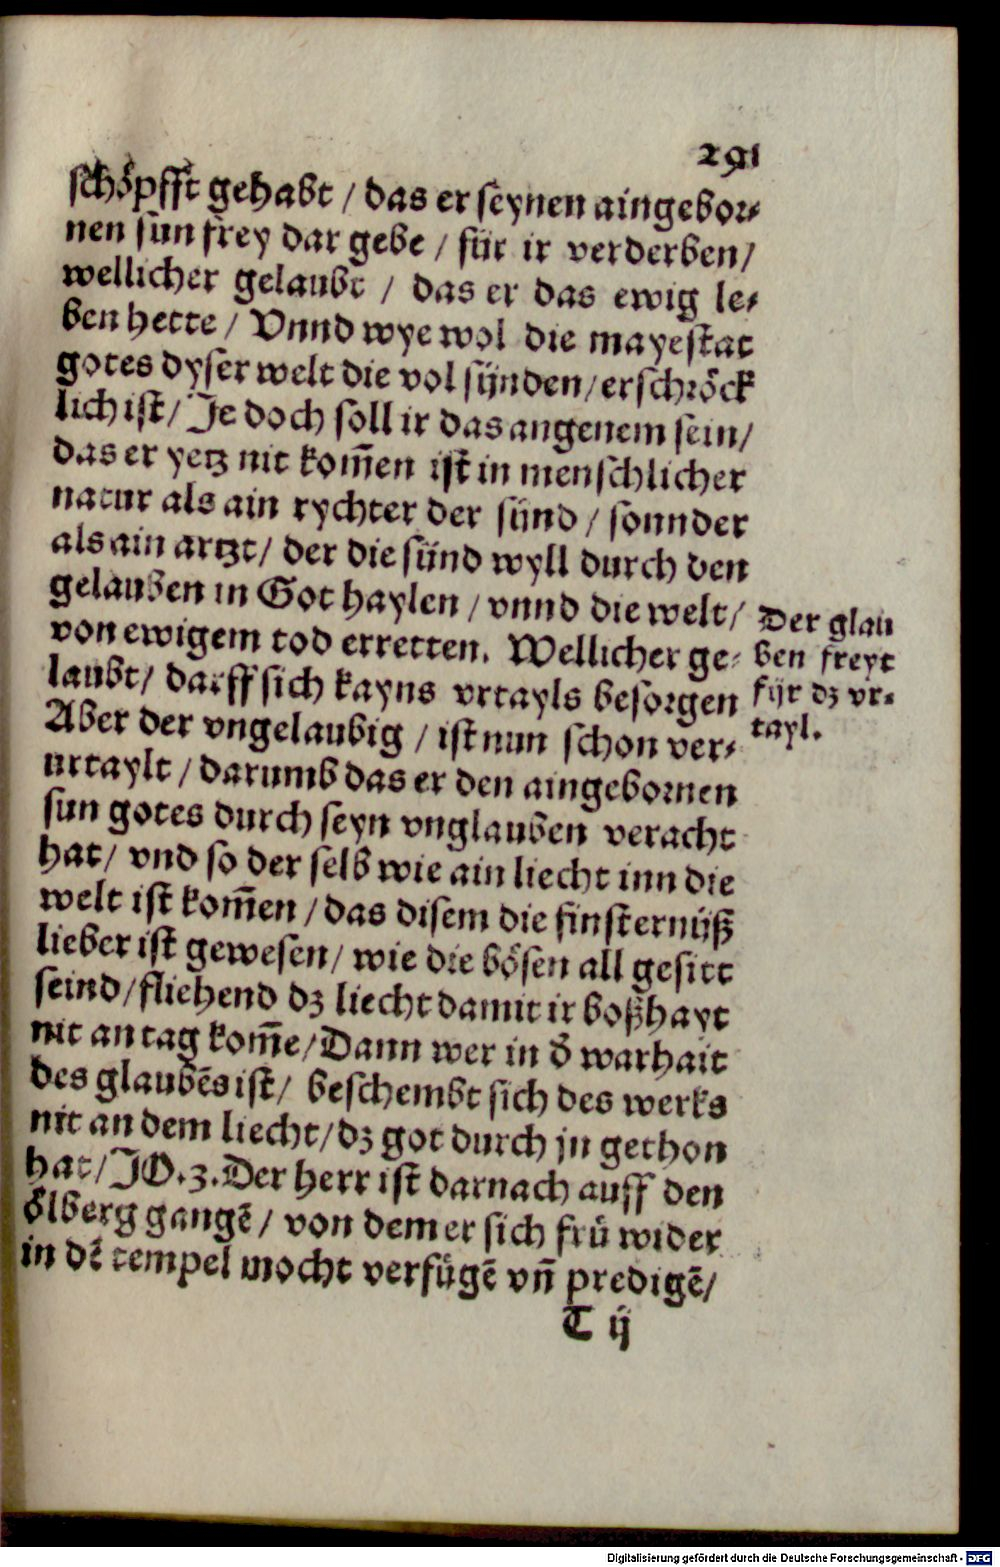 291
schöpfft gehabt / das er seynen aingebor⸗
nen sun frey dar gebe / für ir verderben/
wellicher gelaubt / das er das ewig le⸗
ben hette / Vnnd wye wol die mayestat
gotes dyser welt die vol sünden/erschröck
lich ist/ Je doch soll ir das angenem sein/
das er yetz nit kom̃en ist in menschlicher
natur als ain rychter der sünd / sonnder
als ain artzt/ der die sünd wyll durch den
gelauben in Got haylen / vnnd die welt/
von ewigem tod erretten. Wellicher ge⸗
laubt/ darff sich kayns vrtayls besorgen
Aber der vngelaubig / ist nun schon ver⸗
urtaylt / darumb das er den aingebornen
sun gotes durch seyn vnglauben veracht
hat/ vnd so der selb wie ain liecht inn die
welt ist kom̃en / das disem die finsternüß
lieber ist gewesen/ wie die bösen all gesitt
seind/fliehend dz liecht damit ir boßhayt
nit an tag kom̃e/Dann wer in d̄ warhait
des glaubẽs ist/ beschembt sich des werks
nit an dem liecht/dz got durch jn gethon
hat/JO.3.Der herr ist darnach auff den
ölberg gangẽ / von dem er sich frů wider
in dẽ tempel mocht verfůgẽ vñ predigẽ/
T ij
Der glau
ben freyt
für dz vr⸗
tayl.
Digitalisierung gefördert durch die Deutsche Forschungsgemeinschaft - DFG